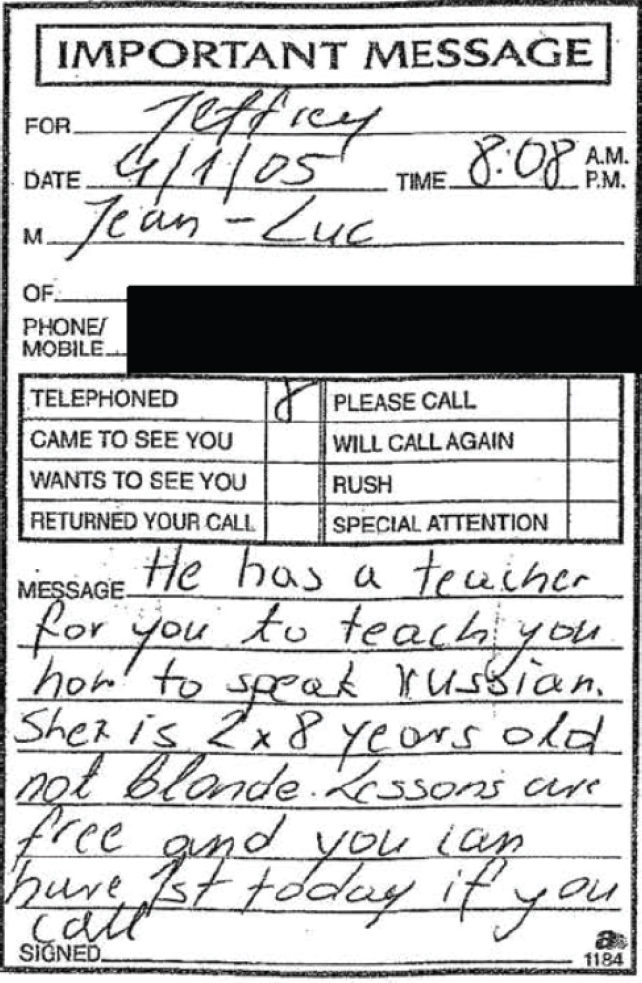 IMPORTANT MESSAGE
FOR Jeffrey
DATE 4/1/05 TIME 8:08 A.M.
P.M.
M Jean-Luc
OF
PHONE/
MOBILE
TELEPHONED PLEASE CALL
CAME TO SEE YOU WILL CALL AGAIN
WANTS TO SEE YOU RUSH
RETURNED YOUR CALL SPECIAL ATTENTION
MESSAGE He has a teacher
for you to teach you
how to speak russian.
She is 2x8 years old
not blonde. Lessons are
free and you can
have 1st today if you
call
SIGNED
1184